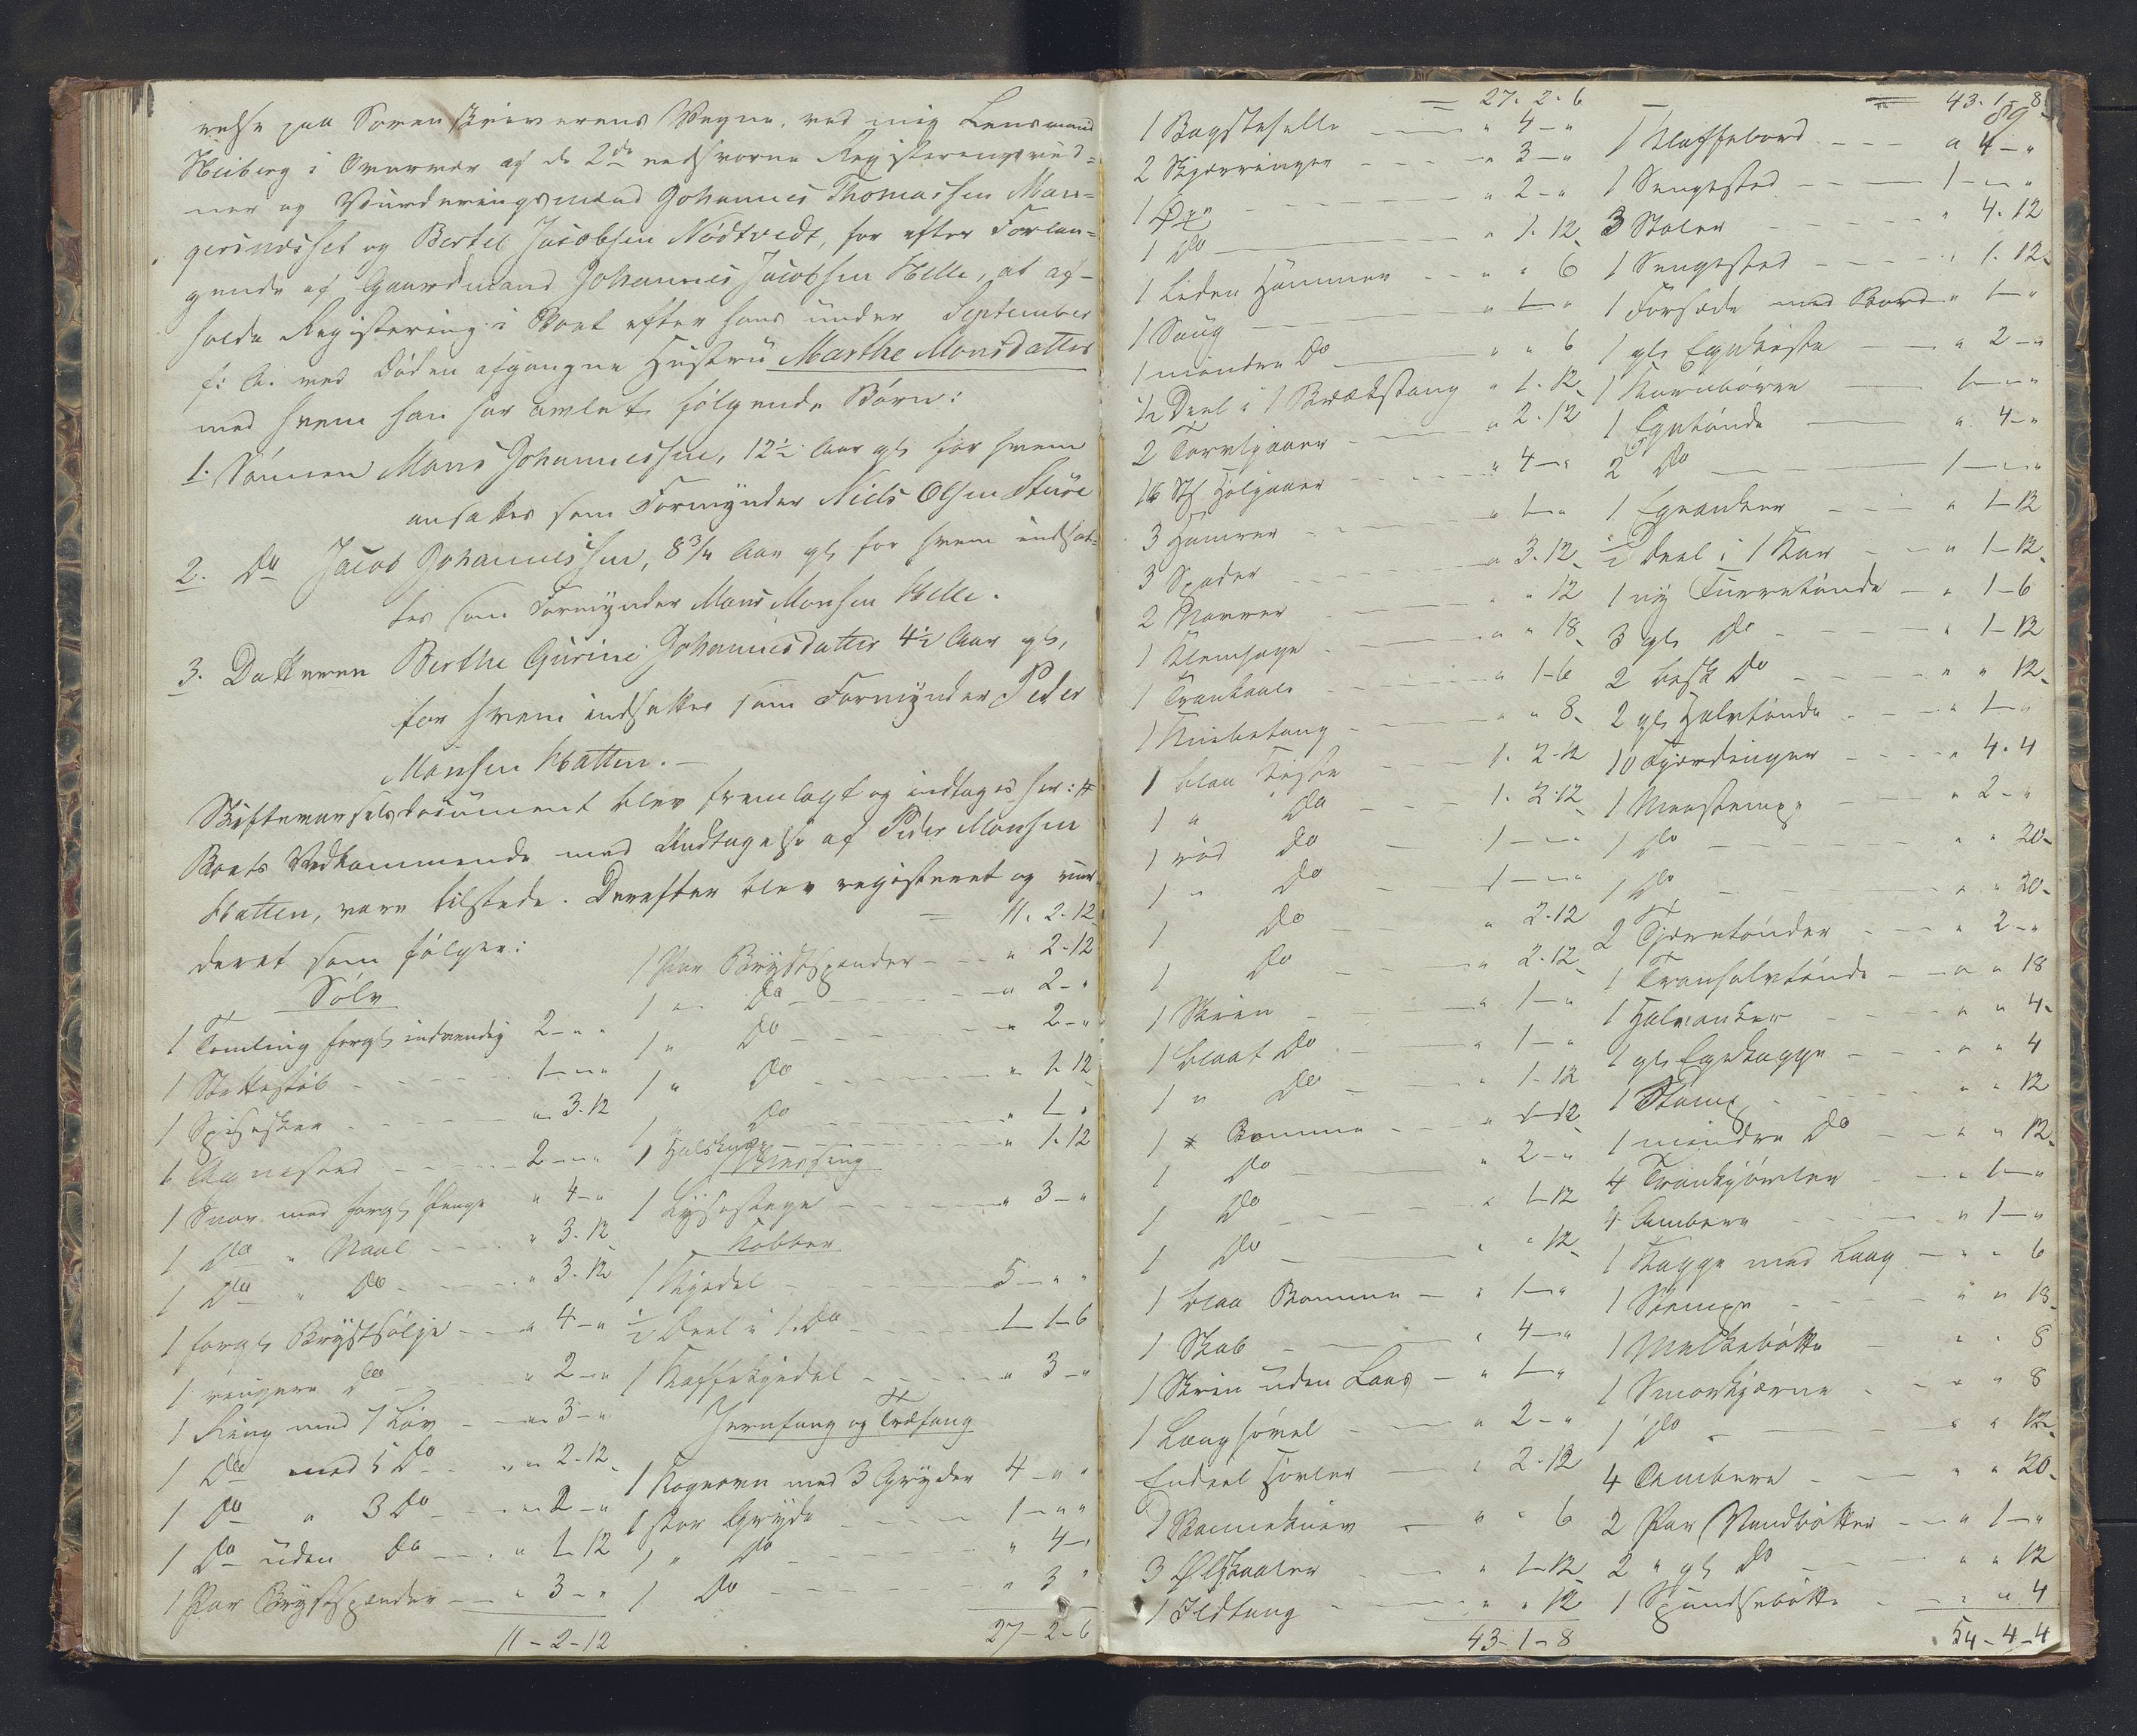 relse paa Sorenskriverens Vegne, ved mig Lensmand
Heiberg i Overvær af de 2de eedsvorne Registerings vid-
ner og Vurderingsmænd Johannes Thomassen Man-
gersnæsset og Bertel Jacobsen Nødtvedt, for efter Forlan-
gende af Gaardmand Johannes Jacobsen Helle, at af-
holde Registering i Boet efter hans under September
f: A. ved Døden afgangne Hustru Marthe Monsdatter
med hvem han har avlet følgende Børn:
1. Sønnen Mons Johannessen, 12½ Aar gl. for hvem
ansattes som Formynder Niels Olsen Sture
2. Do Jacob Johannessen, 8¾ Aar gl. for hvem indsat-
tes som Formynder Mons Monsen Helle.
3. Datteren Berthe Gurine Johannesdatter 4½ Aar gl,
for hvem indsattes som Formynder Peder
Monsen Hatten.
Skiftevarselsdocument blev fremlagt og indtages her: #
Boets Vedkommende med Undtagelse af Peder Monsen
Hatten, vare tilstede. Derefter blev registeret og vur-
deret som følger:
Sølv
1 Tomling forgl indvendig 2 - " "
1 Støttestøb 1 - " "
1 Spiseskee " 3 - 12
1 2 - " "
1 Snor med forgl Penge " 4 - "
1 Do " Naal " 3 - 12
1 Do " Do " 3 - 12
1 forgl Brystsølje " 4 - "
1 ringere Do " 2 - "
1 Ring med 7 Løv " 3 - "
1 Do med 5 Do " 2 - 12
1 Do " 3 Do " 2 - "
1 Do uden Do " 1 - 12
1 Par Brystspender " 3 - "
11 - 2 - 12
= 11. 2. 12
1 Par Brystspender " 2 - 12
1 " Do " 2 - "
1 " Do " 2 - "
1 " Do " 1 - 12
1 Do " 1 - "
1 Halsknap " 1 - 12
Messing
1 Lysestage " 3 - "
Kobber
1 Kjedel 5 - " "
½ Deel i 1 Do 1 - 1 - 6
1 Kaffekjedel " 3 - "
Jernfang og Træfang
1 Kogeovn med 3 Gryder 4 - " "
1 stor Gryde 1 - " "
1 " Do " 4 - "
1 Do " 3 "
27 - 2 - 6
= 27. 2. 6
1 Bagstehelle " 4 - "
2 Skjæringer " 3 - "
1 Øxe " 2 - "
1 Do " 1. 12
1 liden Hammer " " 6
1 Saug " 1 - "
1 mindre Do " " 6
½ Deel i 1 Brækstang " 1. 12
2 Torvspader " 2. 12
16 St " 4 - "
3 Hamrer " 1 - "
3 Spader " 3. 12
2 " " 12
1 " " 18
1 " 1 - 6
1 Knibetang " " 8
1 blaa Kiste 1. 2 - 12
1 " Do 1. 2. 12
1 rød Do 1 - " "
1 " Do 1 - " "
1 Do " 2. 12
1 Do " 2. 12
1 Skrin " 1 - "
1 blaat Do " 1 - "
1 " Do " 1 - 12
1 Bomme " 1 - 12
1 Do " 2 - "
1 Do " 1 - 12
1 Do " " 12
1 blaa Bomme " 1 - "
1 Skab " 4 - "
1 Skrin uden Laas " 1 - "
1 Langhøvel " 2 - "
Endeel Høvler " 2. 12
" " 6
3 Ølskaaler " 1 - 12
1 Ildtang " " 12
43 - 1 - 8
= 43. 1 - 8
89
1 Klaffebord " 4 - "
1 Sengested 1 - " "
3 Stoler " 4. 12
1 Sengested " 1. 12
1 Forsæde med Bord " 1 - "
1 gl. Egekiste " 2 - "
1 Kornbøren 1 - " "
1 Egetønde " 4 - "
2 Do 1 - " "
1 Egeanker " 1 - 12
½ Deel i 1 Kar " 1 - 12
1 ny Furretønde " 1 - 6
3 gl Do " 1 - 12
2 Do " " 12
2 gl Halvtønde " 1 - "
10 Fjerdinger " 4. 4
1 " 2 - "
1 Do " " 20
1 Do " " 20
2 Tjæretønder " 2 - "
1 Tranhalvtønde " " 18
1 Halvanker " " 4
1 gl. Egekagge " " 4
1 Stamp " " 12
1 mindre Do " " 12
4 " 1 - "
4 Ambere " 1 - "
1 Kagge med Laag " " 6
1 Stempe " " 18
1 Melkebøtte " " 8
1 Smørkjærne " " 8
1 Do " " 12
4 Ambere " " 20
2 Par Vandbøtter " 1 - "
2 " gl Do " " 12
1 " " 4
54 - 4 - 4